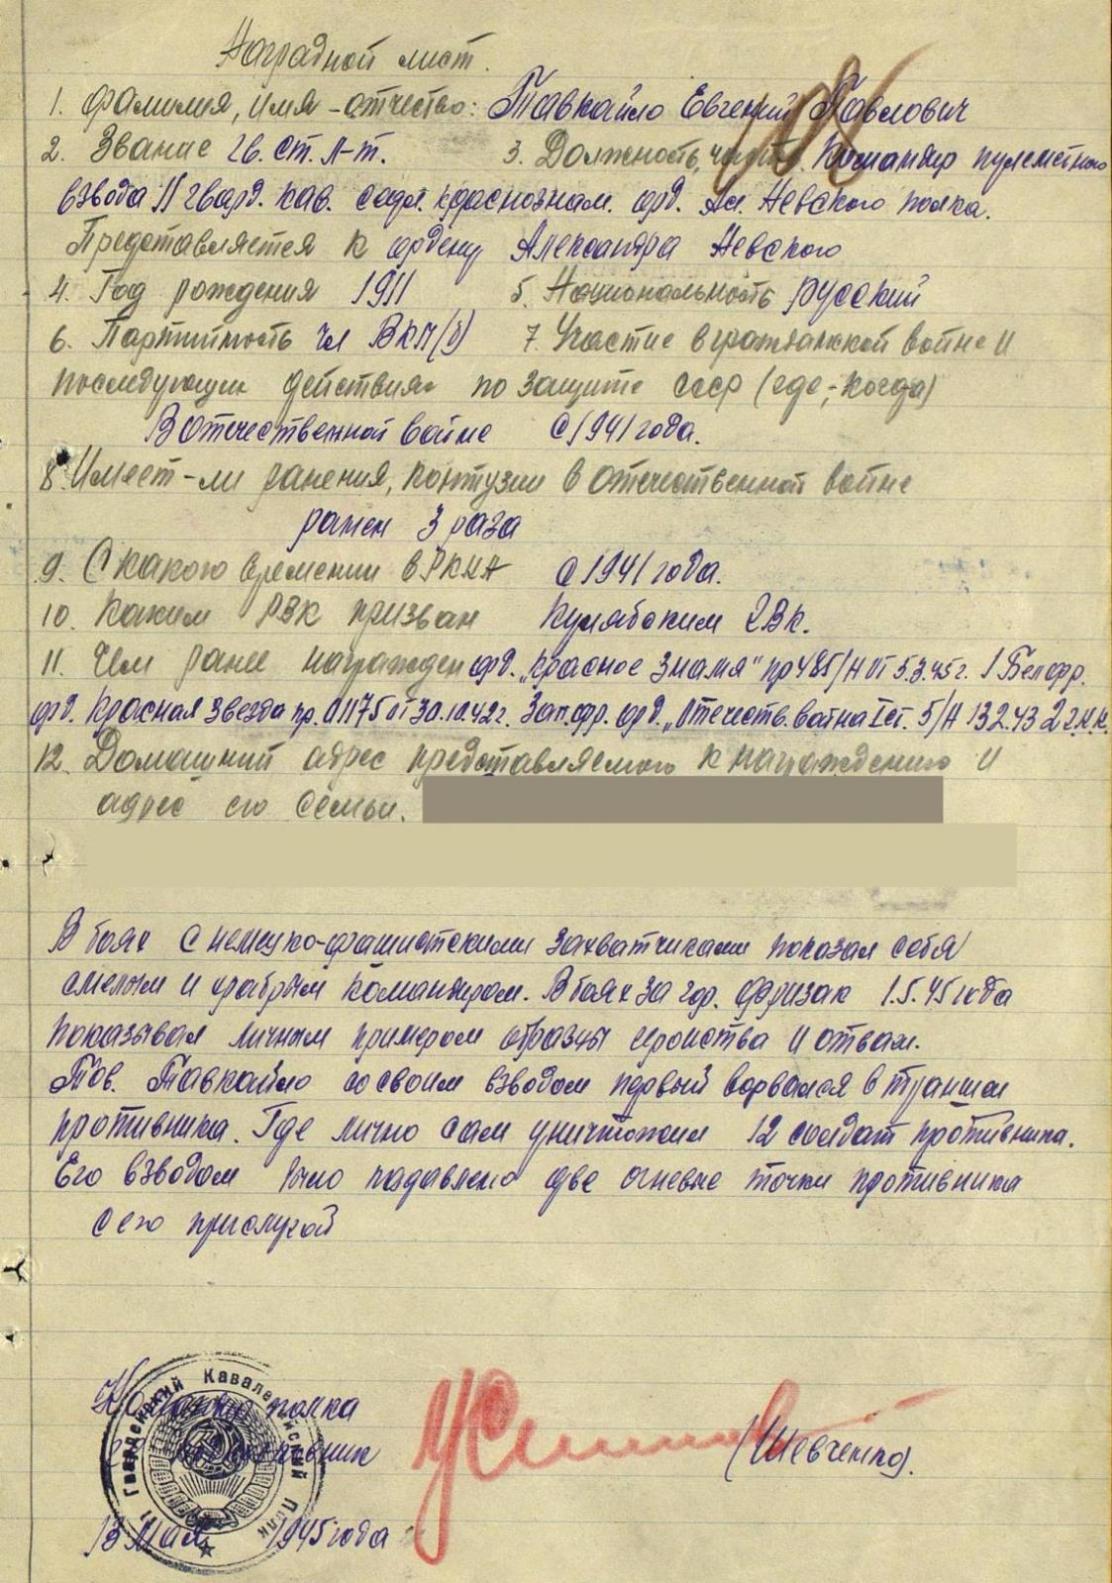 Наградной лист.
1. Фамилия, имя-отчество: Тавкайло Евгений Павлович
2. Звание гв. ст. л-т. 3. Должность, часть. Командир пулеметного
взвода 11 гвард. кав. седл. краснознам. орд. Ал. Невского полка.
Представляется к ордену Александра Невского
4. Год рождения 1911 5. Национальность русский
6. Партийность чл ВКП(б) 7. Участие в гражданской войне и
последующих действиях по защите СССР (где, когда)
В Отечественной войне с 1941 года.
8. Имеет-ли ранения, контузии в отечественной войне
ранен 3 раза
9. С какого времени в РККА с 1941 года.
10. Каким РВК призван Кулябским ГВК.
11. Чем ранее награжден орд. "Красное Знамя" пр 485/н от 5.3.45 г. 1 Бел фр.
орд. Красная звезда пр. 01175 от 30.10.42 г. Зап. фр. орд. "Отечеств. война I ст. 5/н 13 2.43 2 г.к.к.
12. Домашний адрес представляемого к награждению и
адрес его семьи.
В боях с немецко-фашистскими захватчиками показал себя
смелым и храбрым командиром. В боях за гор. Фризак 1.5.45 года
показывал личным примером образцы геройства и отваги.
Тов. Тавкайло со своим взводом первый ворвался в траншеи
противника. Где лично сам уничтожил 12 солдат противника.
Его взводом было подавлено две огневые точки противника
с его прислугой
Командир полка
гв. полковник (Шевченко).
13 Мая 1945 года
11 Гвардейский Кавалерийский Полк